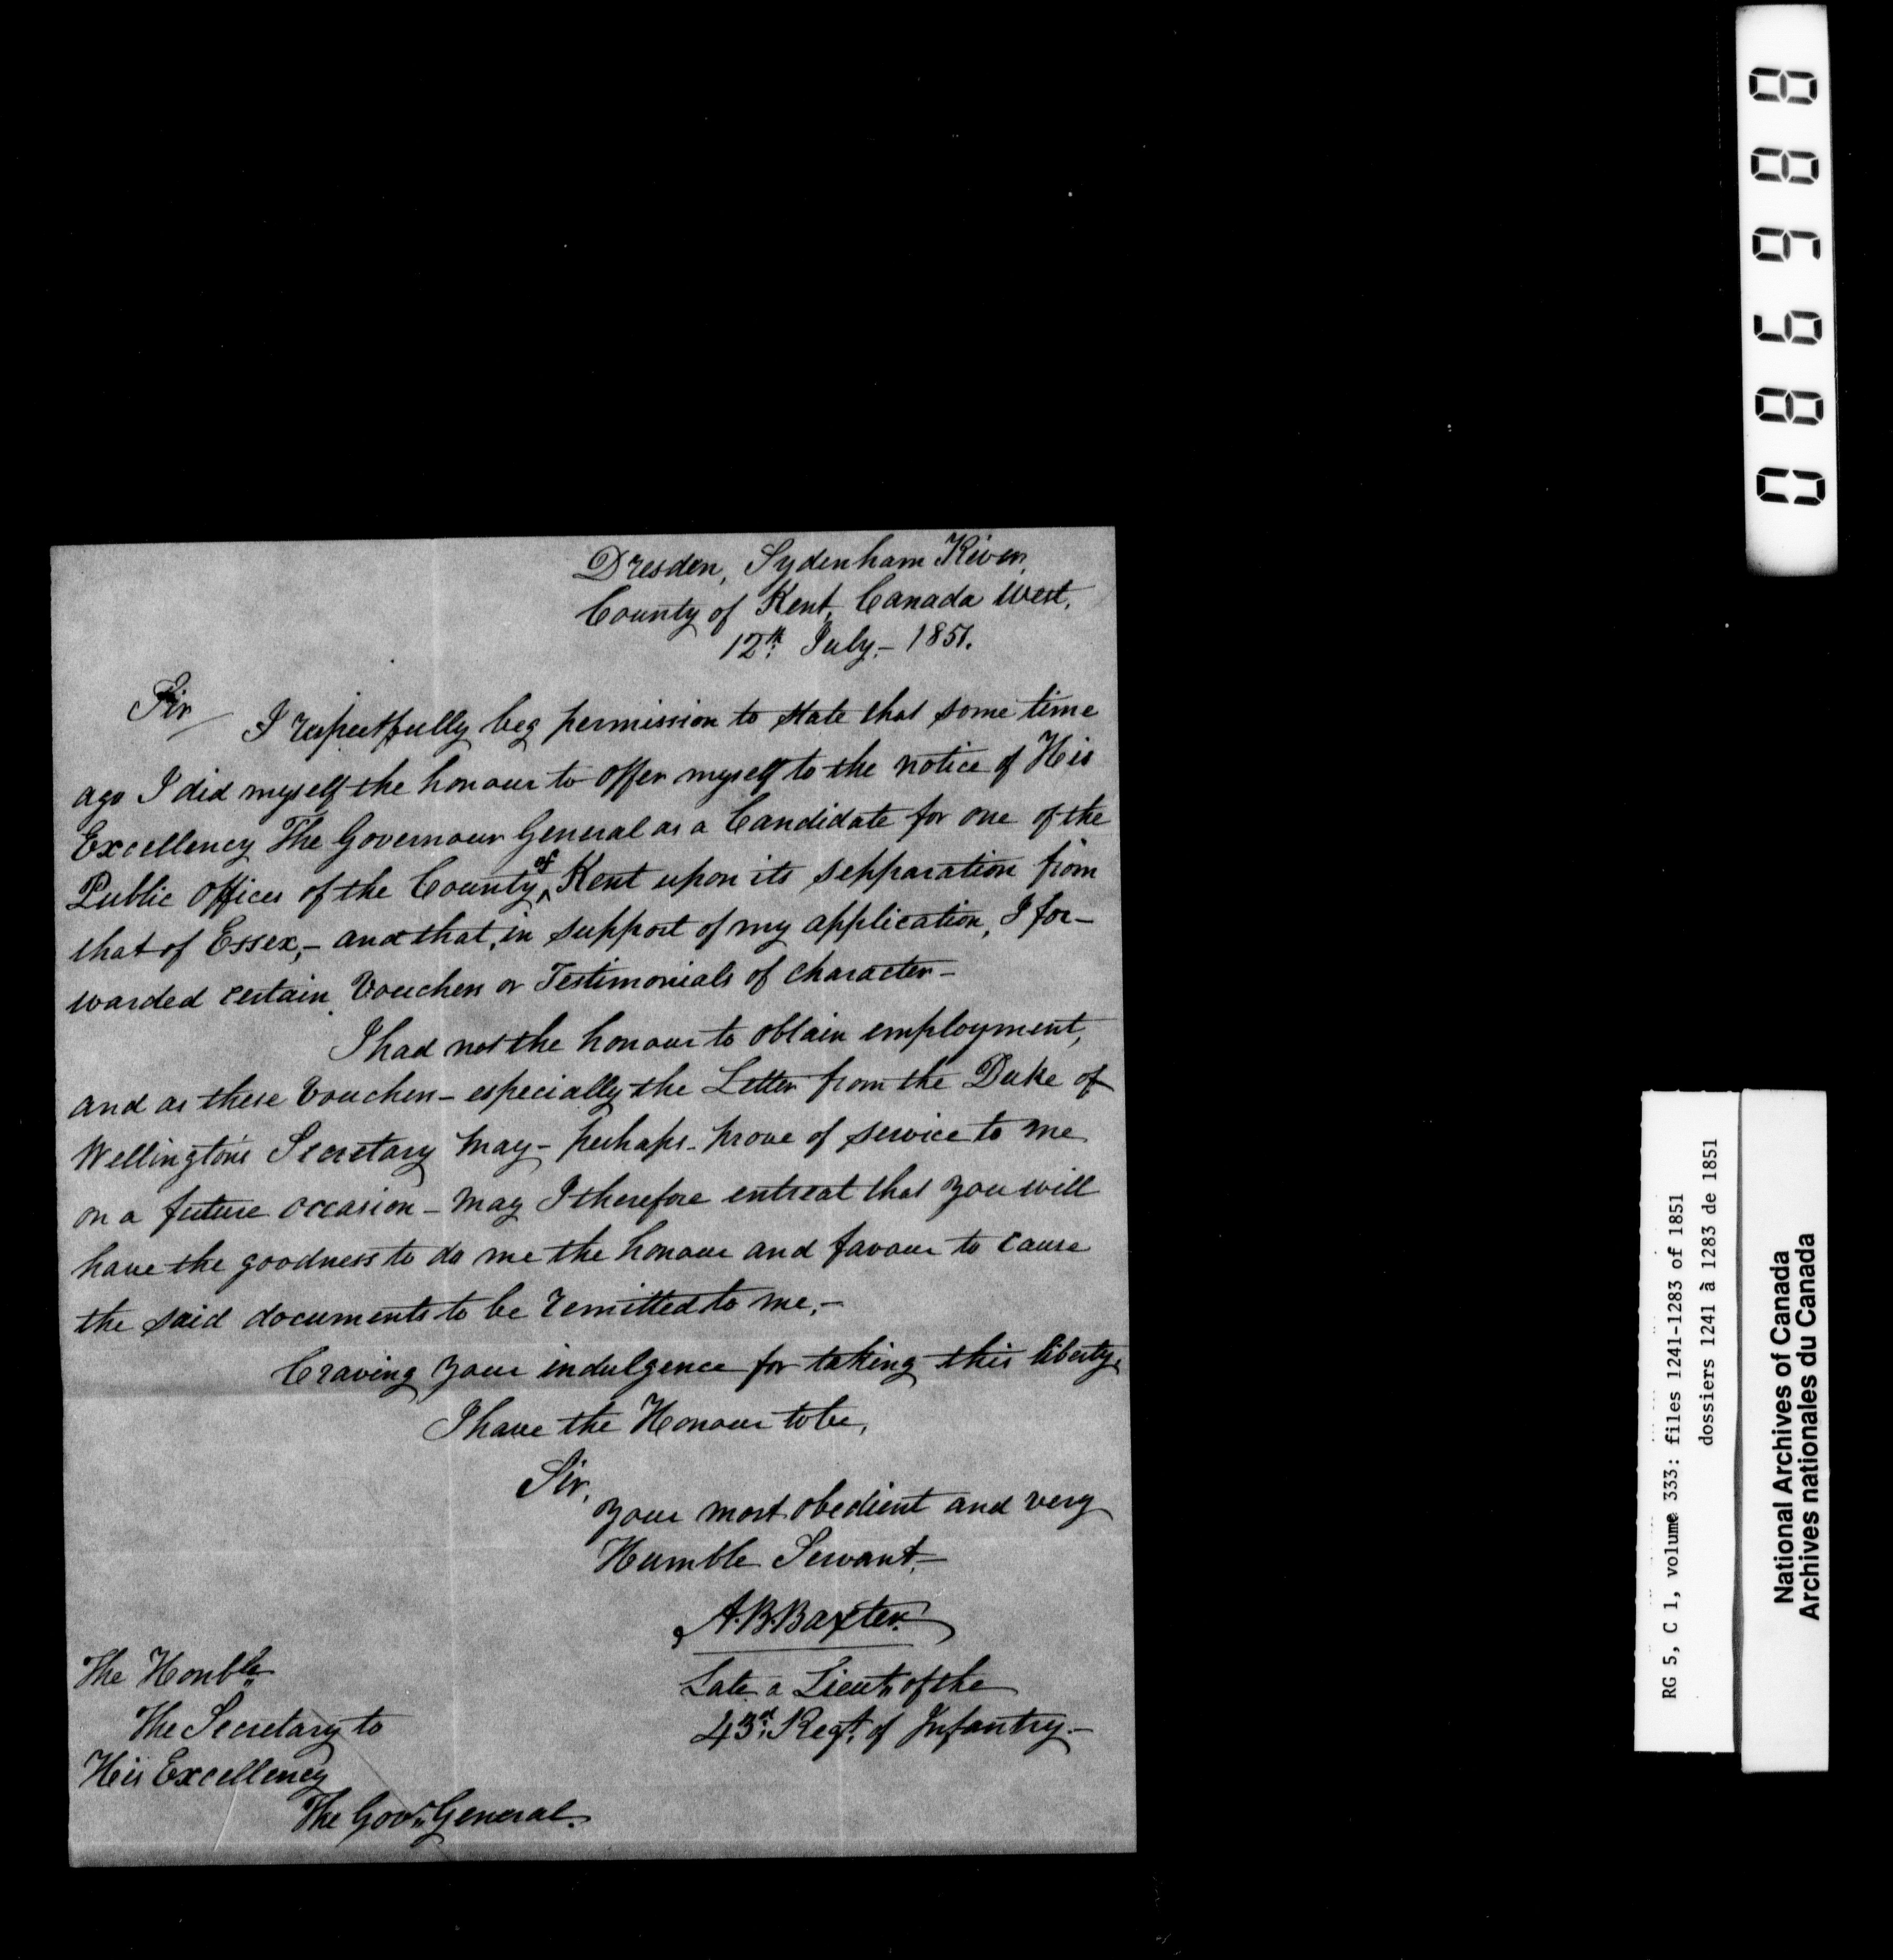 Dresden, Sydenham River,
County of Kent, Canada West,
12th July. – 1851.
Sir
I respectfully beg permission to state that some time
ago I did myself the honour to offer myself to the notice of His
Excellency The Governour General as a Candidate for one of the
Public Offices of the County of Kent upon its sepparation from
that of Essex, – and that, in support of my application, I for-
warded certain Vouchers or Testimonials of character –
I had not the honour to obtain employment,
and as these Vouchers – especially the Letter from the Duke of
Wellington's Secretary may – perhaps – prove of service to me
on a future occasion – may I therefore entreat that you will
have the goodness to do me the honour and favour to cause
the said documents to be remitted to me. –
Craving your indulgence for taking this liberty,
I have the Honour to be,
Sir,
your most obedient and very
Humble Servant. –
A. B. Baxter.
Late a Lieut. of the
43rd. Regt. of Infantry. –
The Honble.
The Secretary to
His Excellency
The Govr. General.
086988
RG 5, C 1, volume 333: files 1241-1283 of 1851
dossiers 1241 à 1283 de 1851
National Archives of Canada
Archives nationales du Canada